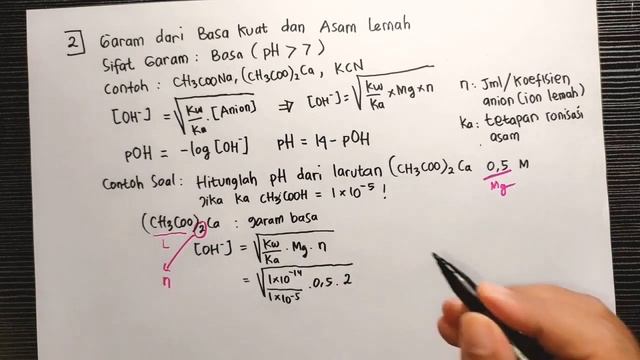 2 Garam dari Basa Kuat dan Asam Lemah
Sifat Garam : Basa ( pH > 7 )
Contoh : CH3COONa, (CH3COO)2Ca , KCN
[OH⁻] = √(Kw/Ka . [Anion]) ⇒ [OH⁻] = √(Kw/Ka × Mg × n)
n : Jml/koefisien anion (ion lemah)
Ka : tetapan ionisasi asam
pOH = -log [OH⁻] pH = 14 - pOH
Contoh Soal : Hitunglah pH dari larutan (CH3COO)2 Ca 0,5 M
Mg
jika Ka CH3COOH = 1 × 10⁻⁵ !
(CH3COO)2Ca : garam basa
L
n
[OH⁻] = √(Kw/Ka . Mg . n)
= √(1×10⁻¹⁴/1×10⁻⁵ . 0,5 . 2)